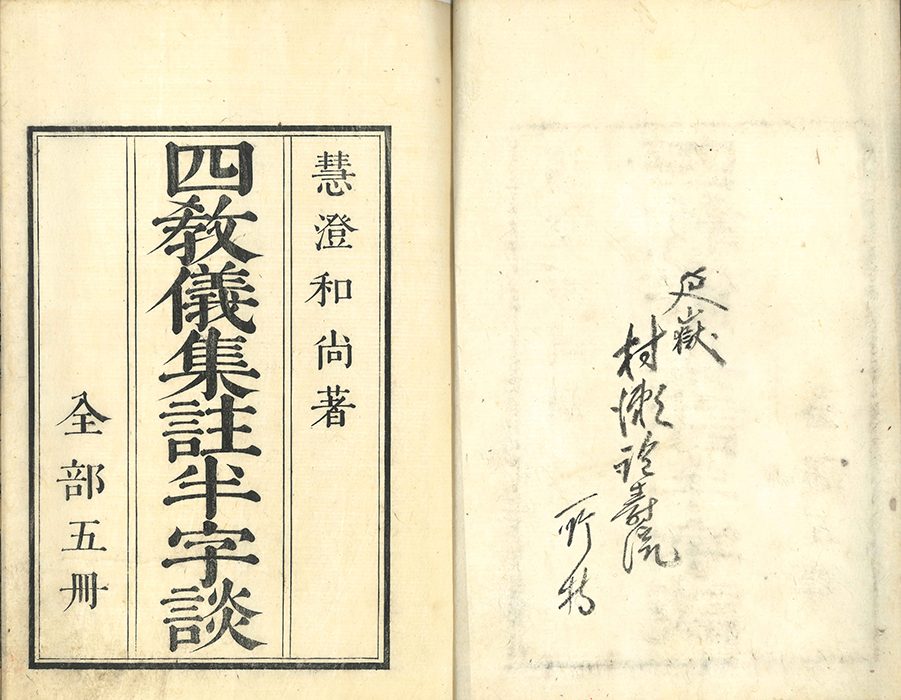 嶽
村瀬壽
所持
慧澄和尚著
四教儀集註半字談
全部五冊